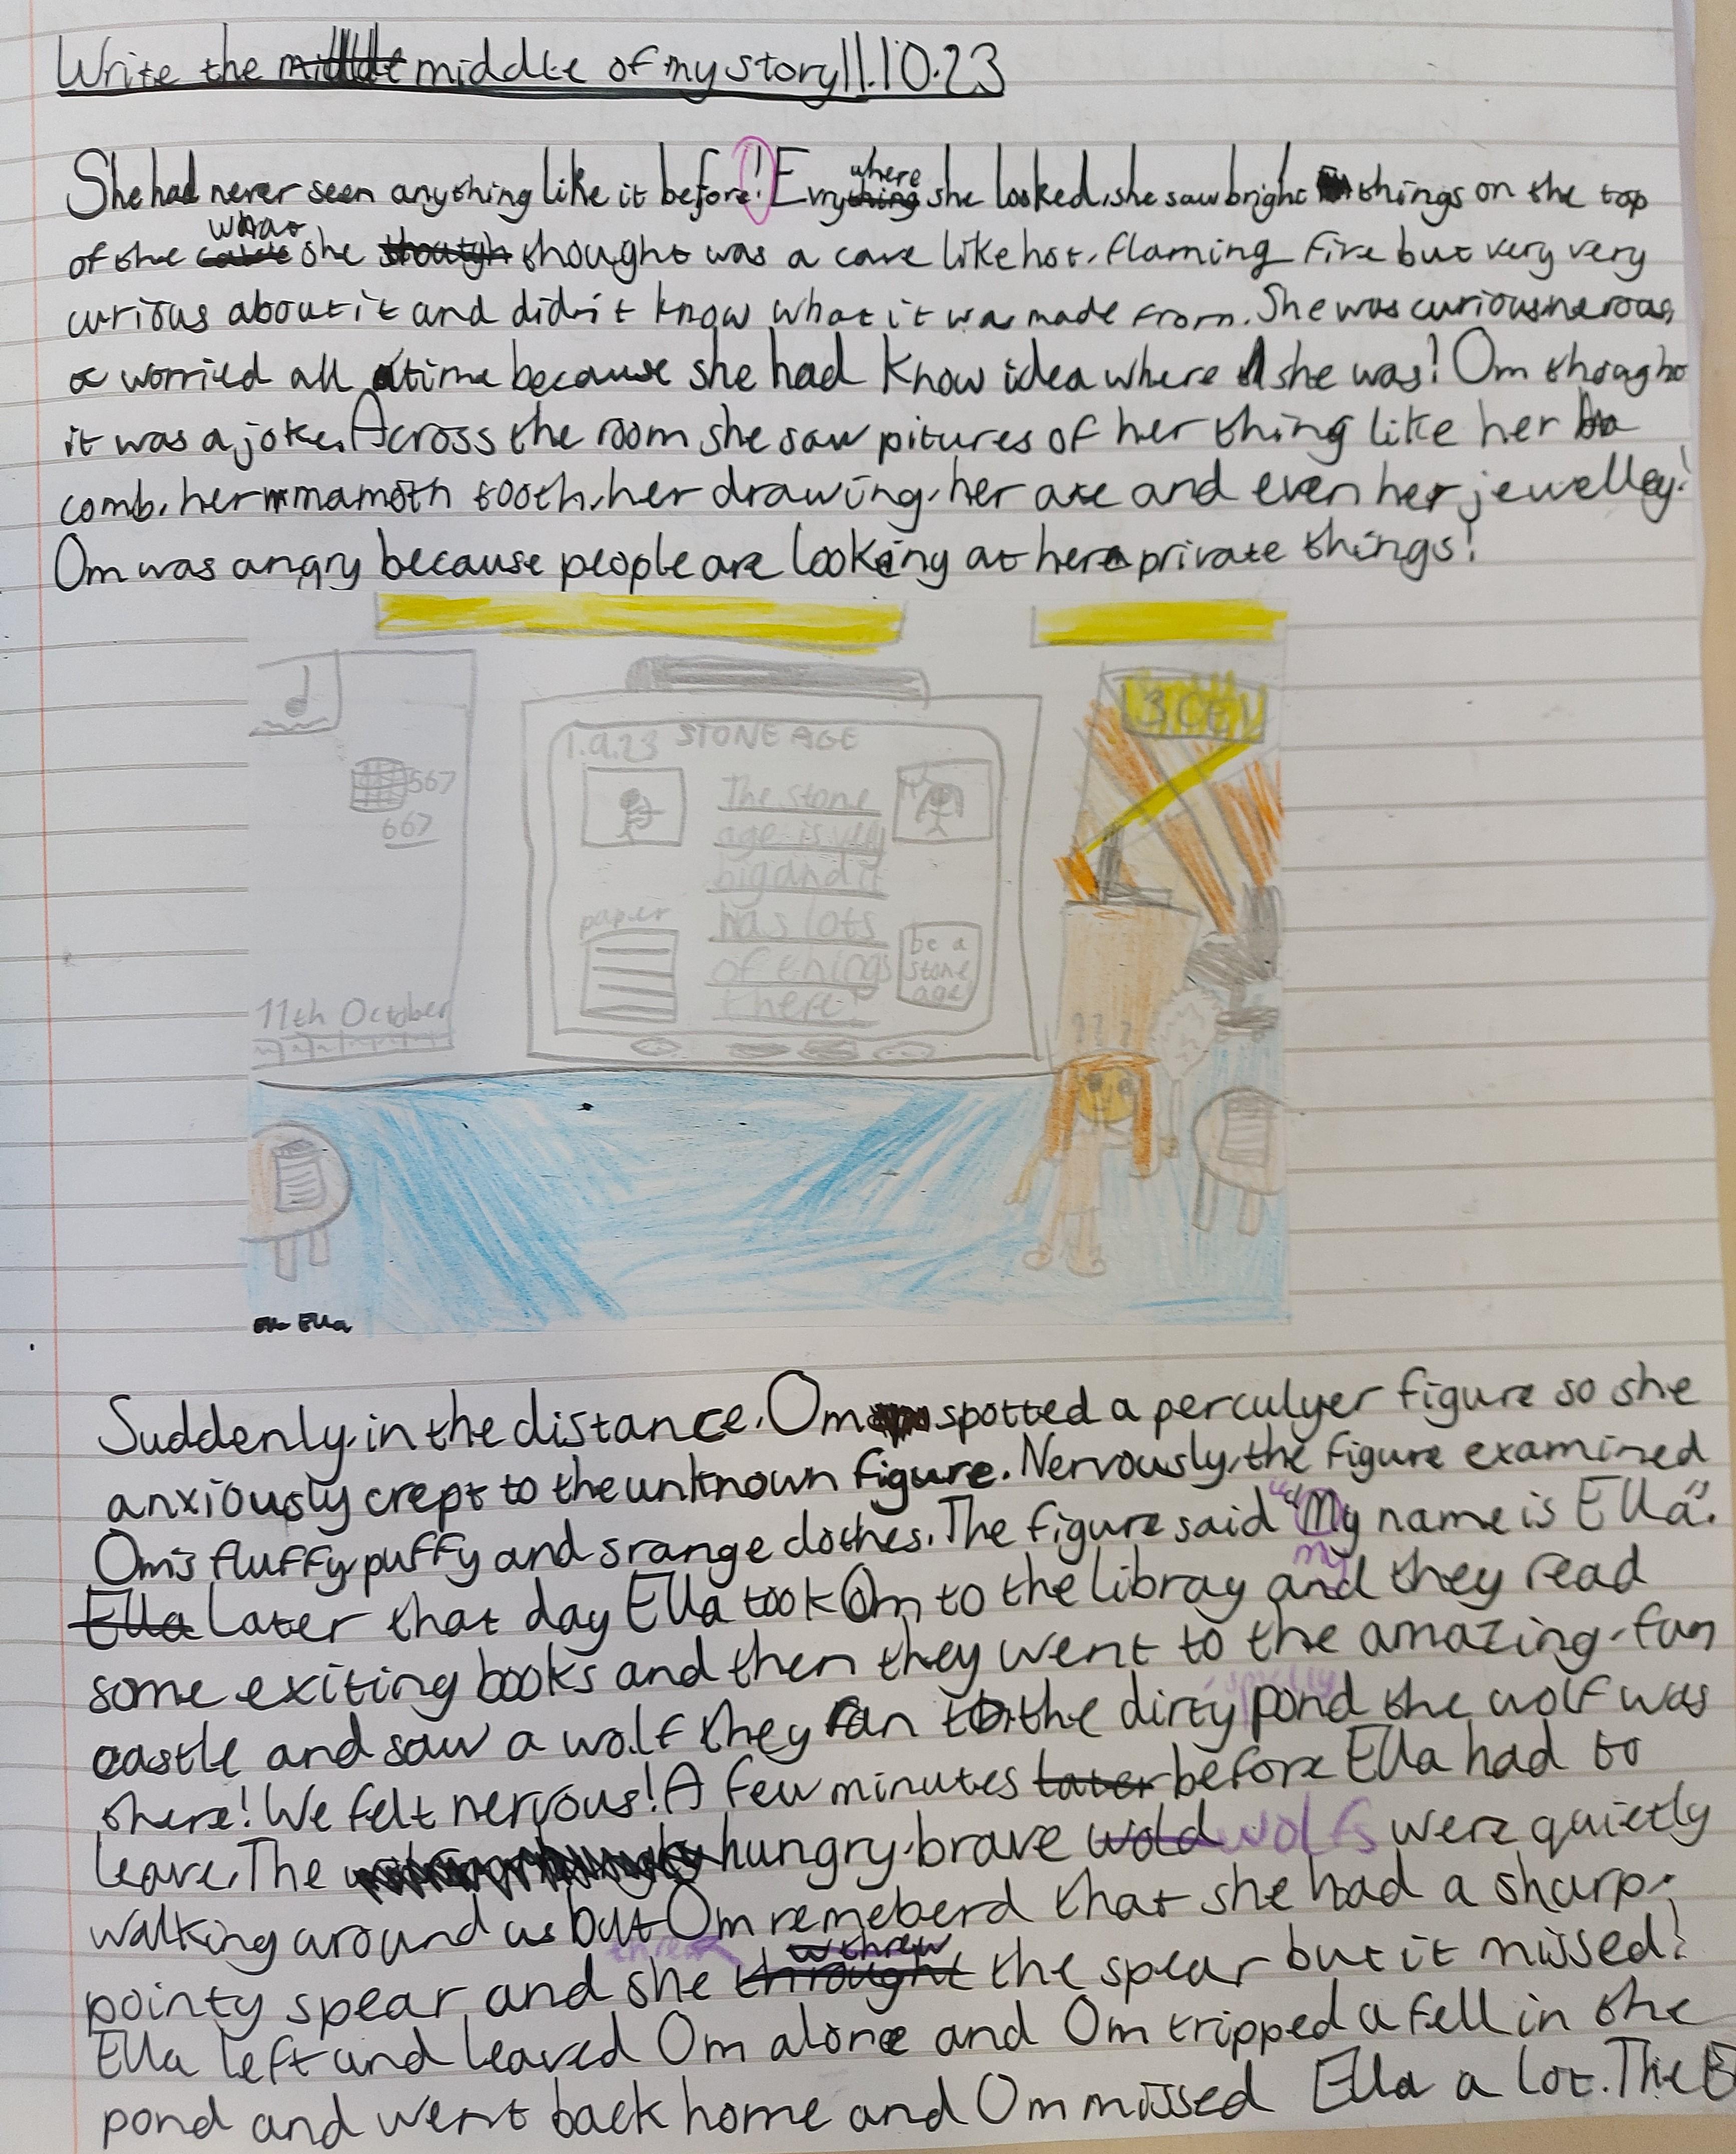 Write the middle of my story 11.10.23
She had never seen anything like it before! Evrywhere she looked, she saw bright things on the top
of the what she thought was a cave like hot, flaming fire but very very
curious about it and didn't know what it was made from. She was curious nerous,
worried all time because she had know idea where she was! Om thoaght
it was a joke. Across the room she saw pitures of her thing like her
comb, her mamoth tooth, her drawing, her axe and even her jewelley!
Om was angry because people are looking at here private things!
567
667
11th October
1.9.23 STONE AGE
The stone
age is very
big and it
has lots
of things
there!
paper
be a
stone
age!
3CE
???
Ella
Suddenly, in the distance, Om spotted a perculyer figure so she
anxiously crept to the unknown figure. Nervously, the figure examined
Om's fluffy, puffy and srange clothes. The figure said "My name is Ella".
my
Later that day Ella took Om to the libray and they read
some exiting books and then they went to the amazing, fun
castle and saw a wolf they ran to the dirty pond the wolf was
there! We felt nervous! A few minutes before Ella had to
leave. The hungry, brave wolfs were quietly
walking around us but Om remeberd that she had a sharp,
pointy spear and she threw the spear but it missed!
Ella left and leaved Om alone and Om tripped a fell in the
pond and went back home and Om missed Ella a lot. The